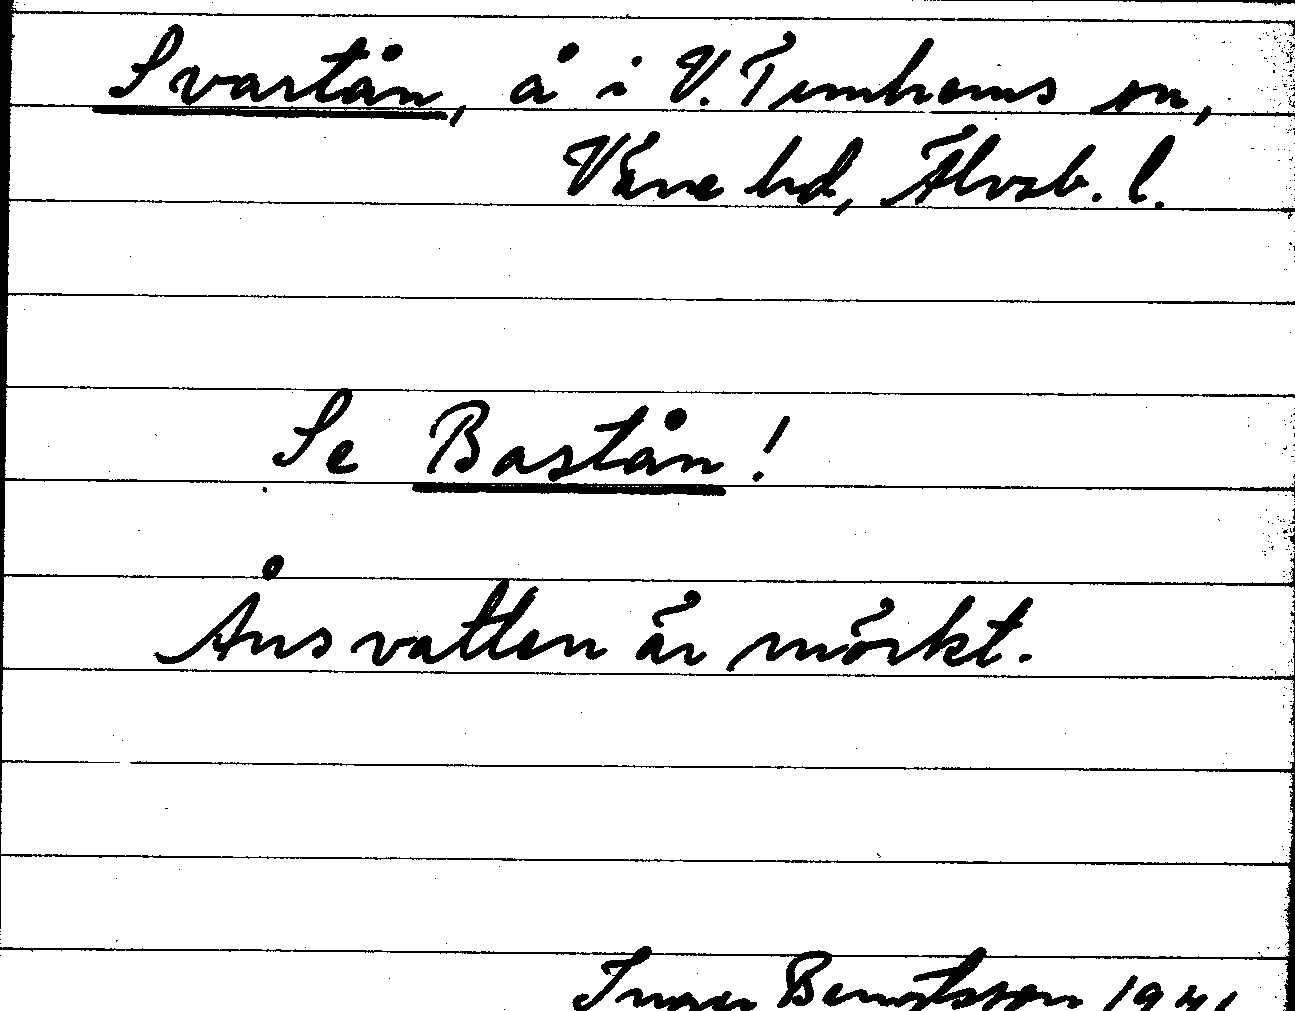 Svartån, å i V. Tunhems sn,
Väne hd, Älvsb. l.
Se Bastån!
Åns vatten är mörkt.
Bengtsson